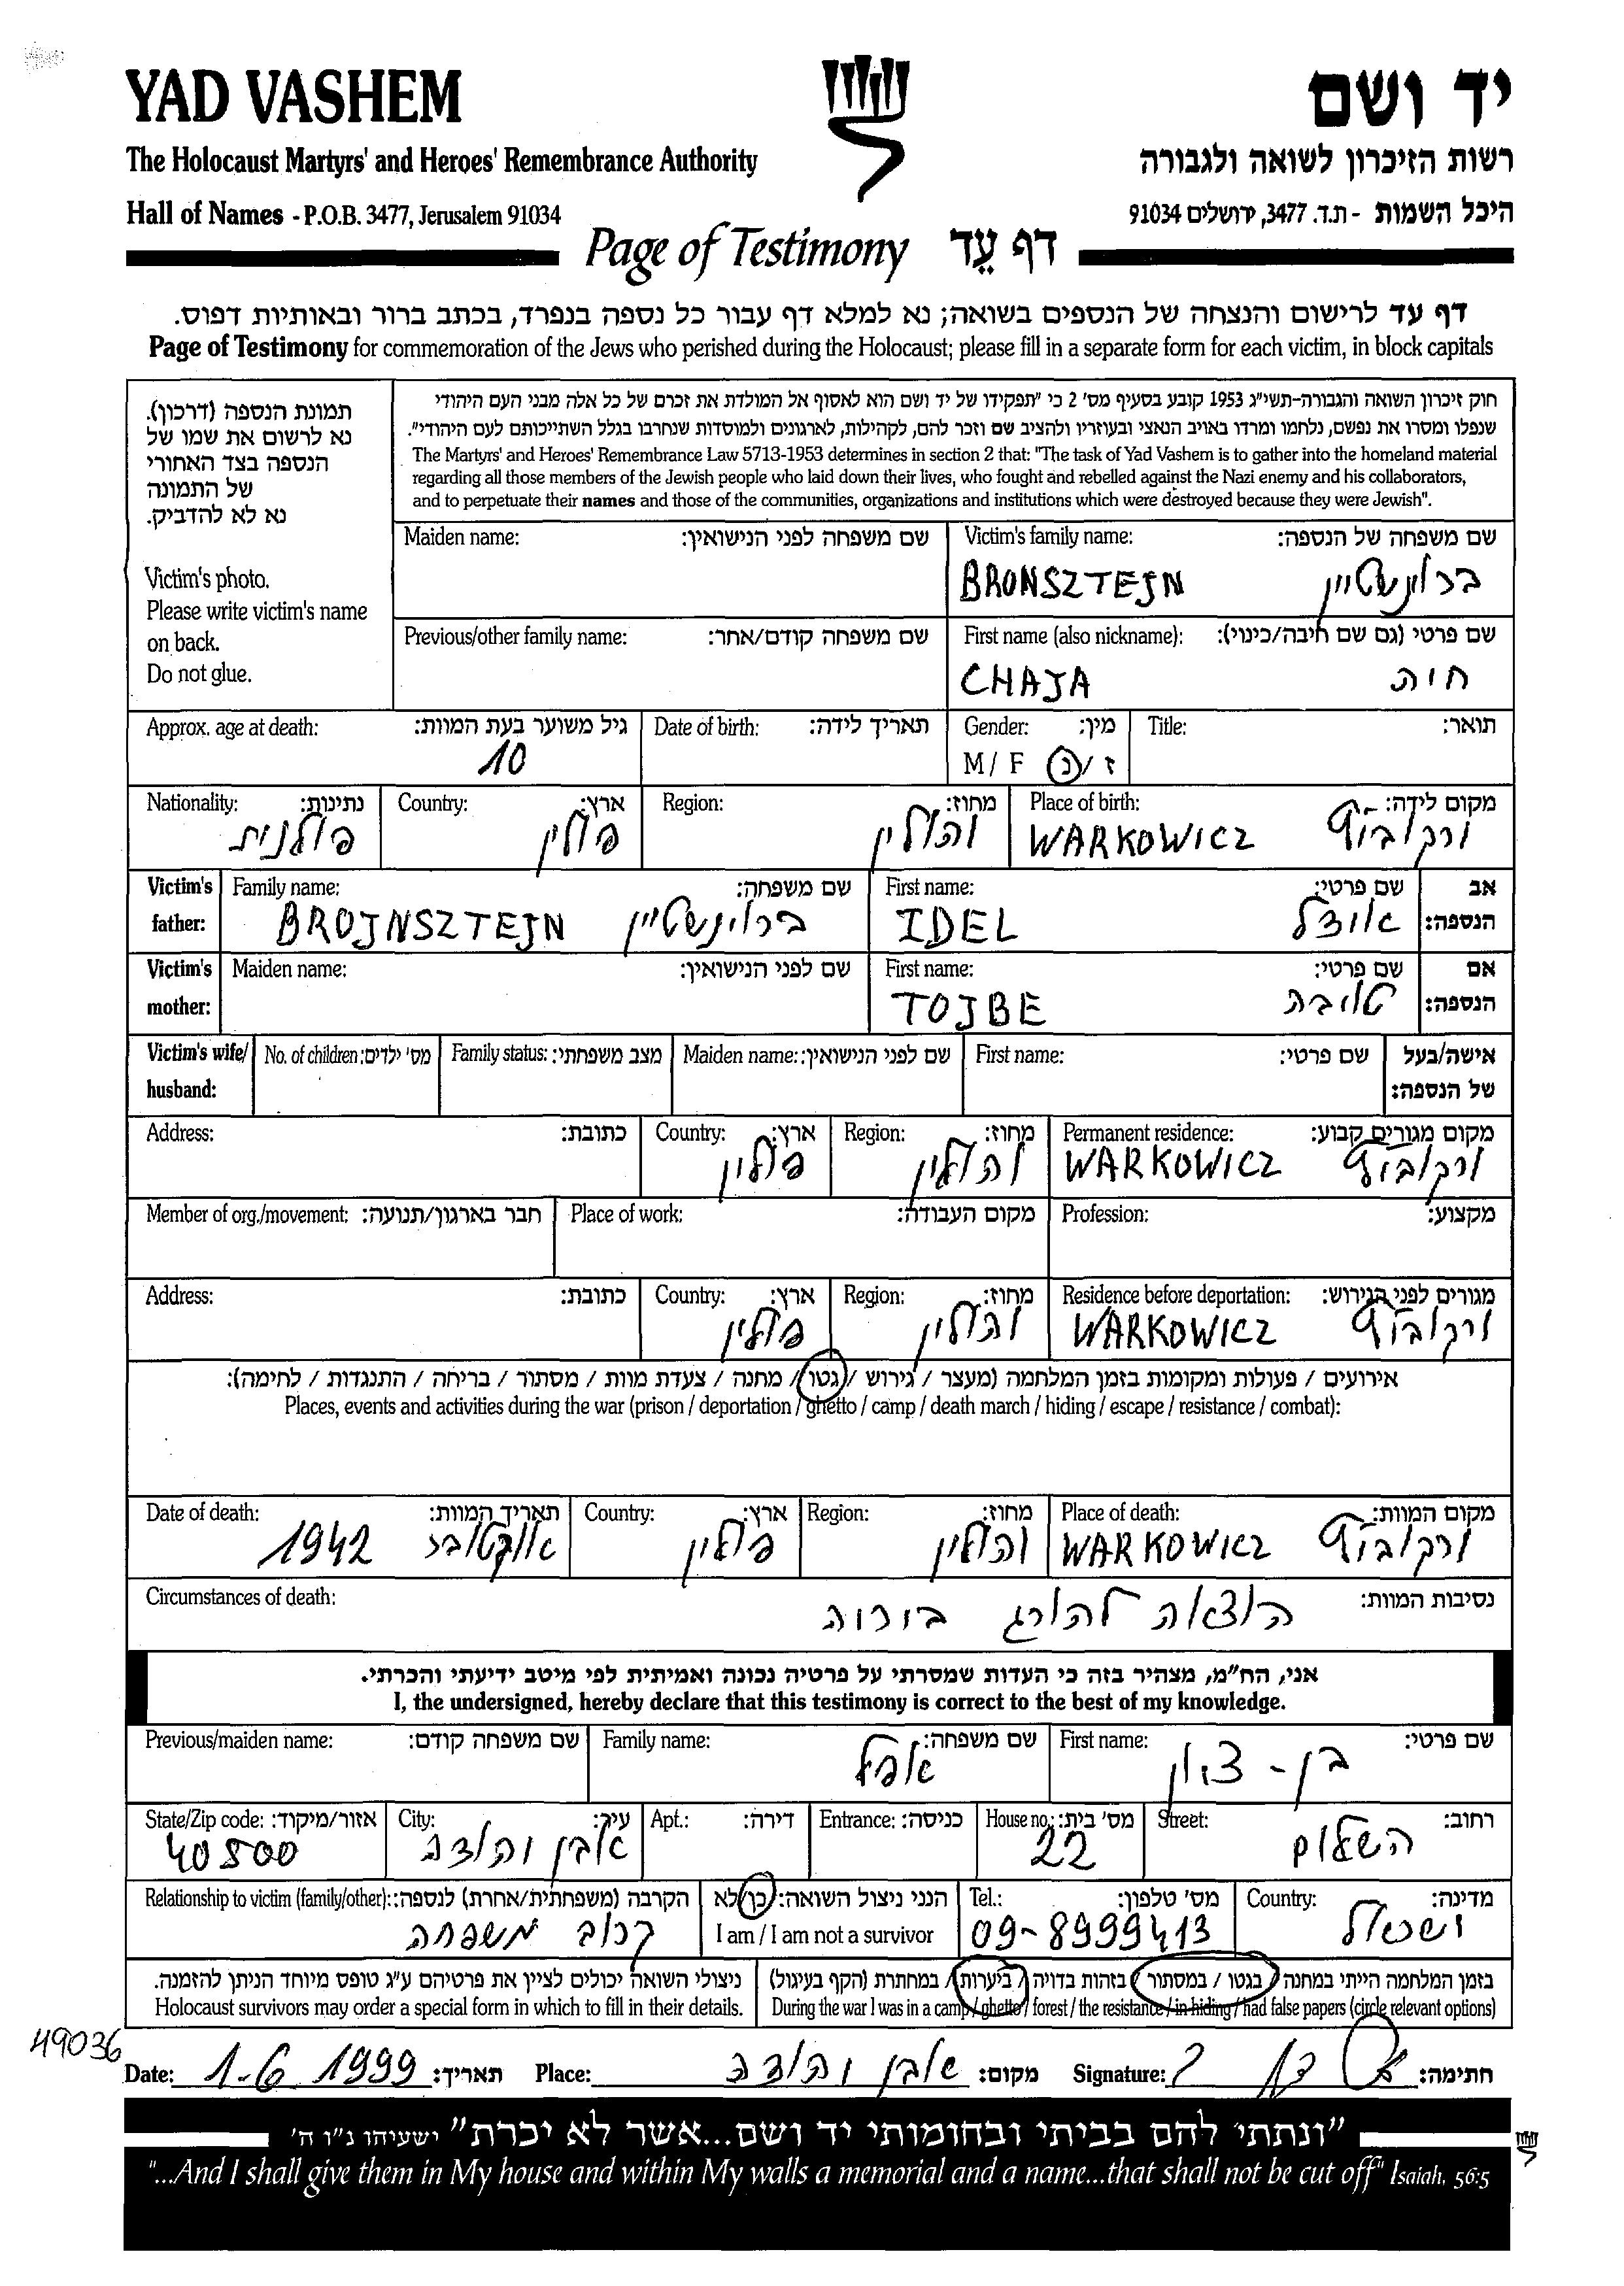 YAD VASHEM
יד ושם
The Holocaust Martyrs' and Heroes' Remembrance Authority
רשות הזיכרון לשואה ולגבורה
Hall of Names - P.O.B. 3477, Jerusalem 91034
היכל השמות - ת.ד. 3477, ירושלים 91034
Page of Testimony דף עֵד
דף עד לרישום והנצחה של הנספים בשואה; נא למלא דף עבור כל נספה בנפרד, בכתב ברור ובאותיות דפוס.
Page of Testimony for commemoration of the Jews who perished during the Holocaust; please fill in a separate form for each victim, in block capitals
תמונת הנספה (דרכון).
נא לרשום את שמו של
הנספה בצד האחורי
של התמונה
נא לא להדביק.
Victim's photo.
Please write victim's name
on back.
Do not glue.
חוק זיכרון השואה והגבורה-תשי"ג 1953 קובע בסעיף מס' 2 כי "תפקידו של יד ושם הוא לאסוף אל המולדת את זכרם של כל אלה מבני העם היהודי
שנפלו ומסרו את נפשם, נלחמו ומרדו באויב הנאצי ובעוזריו ולהציב שם וזכר להם, לקהילות, לארגונים ולמוסדות שנחרבו בגלל השתייכותם לעם היהודי".
The Martyrs' and Heroes' Remembrance Law 5713-1953 determines in section 2 that: "The task of Yad Vashem is to gather into the homeland material
regarding all those members of the Jewish people who laid down their lives, who fought and rebelled against the Nazi enemy and his collaborators,
and to perpetuate their names and those of the communities, organizations and institutions which were destroyed because they were Jewish".
Maiden name: שם משפחה לפני הנישואין:
Victim's family name: שם משפחה של הנספה:
BRONSZTEJN ברוינשטיין
Previous/other family name: שם משפחה קודם/אחר:
First name (also nickname): שם פרטי (גם שם חיבה/כינוי):
CHAJA חיה
Approx. age at death: גיל משוער בעת המוות:
10
Date of birth: תאריך לידה:
Gender: מין:
M / F ז / נ
Title: תואר:
Nationality: נתינות:
פולנית
Country: ארץ:
פולין
Region: מחוז:
ווהלין
Place of birth: מקום לידה:
WARKOWICZ ורקוביץ
Victim's father: אב הנספה:
Family name: שם משפחה:
BROJNSZTEJN ברוינשטיין
First name: שם פרטי:
IDEL אידל
Victim's mother: אם הנספה:
Maiden name: שם לפני הנישואין:
First name: שם פרטי:
TOJBE טויבה
Victim's wife/ husband: אישה/בעל של הנספה:
No. of children: מס' ילדים:
Family status: מצב משפחתי:
Maiden name: שם לפני הנישואין:
First name: שם פרטי:
Address: כתובת:
Country: ארץ:
פולין
Region: מחוז:
ווהלין
Permanent residence: מקום מגורים קבוע:
WARKOWICZ ורקוביץ
Member of org./movement: חבר בארגון/תנועה:
Place of work: מקום העבודה:
Profession: מקצוע:
Address: כתובת:
Country: ארץ:
פולין
Region: מחוז:
ווהלין
Residence before deportation: מגורים לפני הגירוש:
WARKOWICZ ורקוביץ
אירועים / פעולות ומקומות בזמן המלחמה (מעצר / גירוש / גטו / מחנה / צעדת מוות / מסתור / בריחה / התנגדות / לחימה):
Places, events and activities during the war (prison / deportation / ghetto / camp / death march / hiding / escape / resistance / combat):
Date of death: תאריך המוות:
1942 אוקטובר
Country: ארץ:
פולין
Region: מחוז:
ווהלין
Place of death: מקום המוות:
WARKOWICZ ורקוביץ
Circumstances of death: נסיבות המוות:
הוצאה להורג ביריה
אני, הח"מ, מצהיר בזה כי העדות שמסרתי על פרטיה נכונה ואמיתית לפי מיטב ידיעתי והכרתי.
I, the undersigned, hereby declare that this testimony is correct to the best of my knowledge.
Previous/maiden name: שם משפחה קודם:
Family name: שם משפחה:
אפל
First name: שם פרטי:
בן - ציון
State/Zip code: אזור/מיקוד:
40500
City: עיר:
אבן יהודה
Apt.: דירה:
Entrance: כניסה:
House no.: מס' בית:
22
Street: רחוב:
השלום
Relationship to victim (family/other): הקרבה (משפחתית/אחרת) לנספה:
קרוב משפחה
הנני ניצול השואה: כן/לא
I am / I am not a survivor
Tel.: מס' טלפון:
09-8999413
Country: מדינה:
ישראל
ניצולי השואה יכולים לציין את פרטיהם ע"ג טופס מיוחד הניתן להזמנה.
Holocaust survivors may order a special form in which to fill in their details.
בזמן המלחמה הייתי במחנה / בגטו / במסתור / בזהות בדויה / ביערות / במחתרת (הקף בעיגול)
During the war I was in a camp / ghetto / forest / the resistance / in hiding / had false papers (circle relevant options)
49036
Date: 1-6 1999 תאריך:
Place: אבן יהודה מקום:
Signature: חתימה:
"ונתתי להם בביתי ובחומותי יד ושם...אשר לא יכרת" ישעיהו נ"ו ה'
"...And I shall give them in My house and within My walls a memorial and a name...that shall not be cut off" Isaiah, 56:5